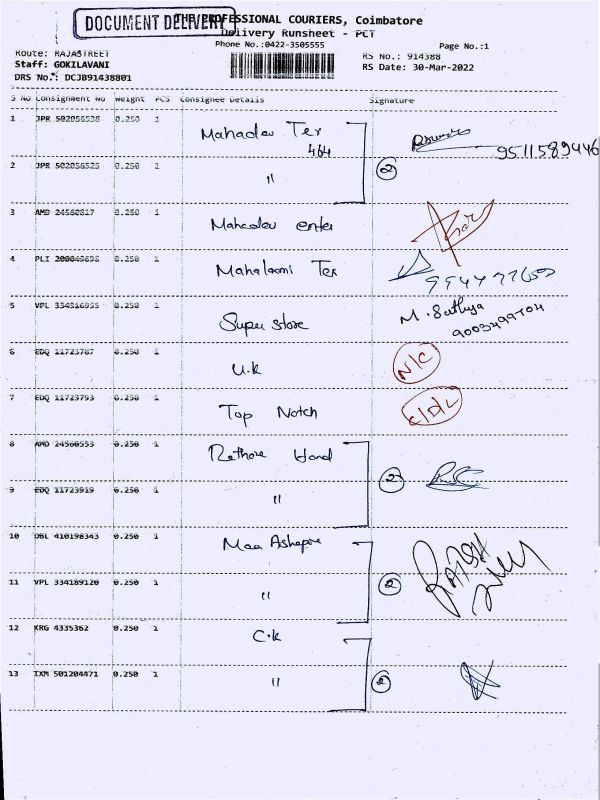 DOCUMENT DELIVERY
THE PROFESSIONAL COURIERS, Coimbatore
Delivery Runsheet - PCT
Phone No.:0422-3505555
Page No.:1
Route: RAJASTREET
RS No.: 914388
Staff: GOKILAVANI
RS Date: 30-Mar-2022
DRS No.: DCJB91438801
S No Consignment No Weight PCS Consignee Details Signature
1 JPR 502056538 0.250 1 Mahadev Tex
464
9511589446
2 JPR 502056525 0.250 1 " 2
3 AMD 24560817 0.250 1 Mahadev enter
4 PLI 200049698 0.250 1 Mahalaxmi Tex
5 VPL 334316955 0.250 1 Super store M. Sathya
6 EDQ 11723787 0.250 1 U.K N/C
7 EDQ 11723793 0.250 1 Top Notch C/D/L
8 AMD 24560553 0.250 1 Rathore Hand 2
9 EDQ 11723919 0.250 1 "
10 DBL 410198343 0.250 1 Maa Ashapre
11 VPL 334189120 0.250 1 " 2
12 KRG 4335362 0.250 1 C.K
13 IXM 501204471 0.250 1 " 2